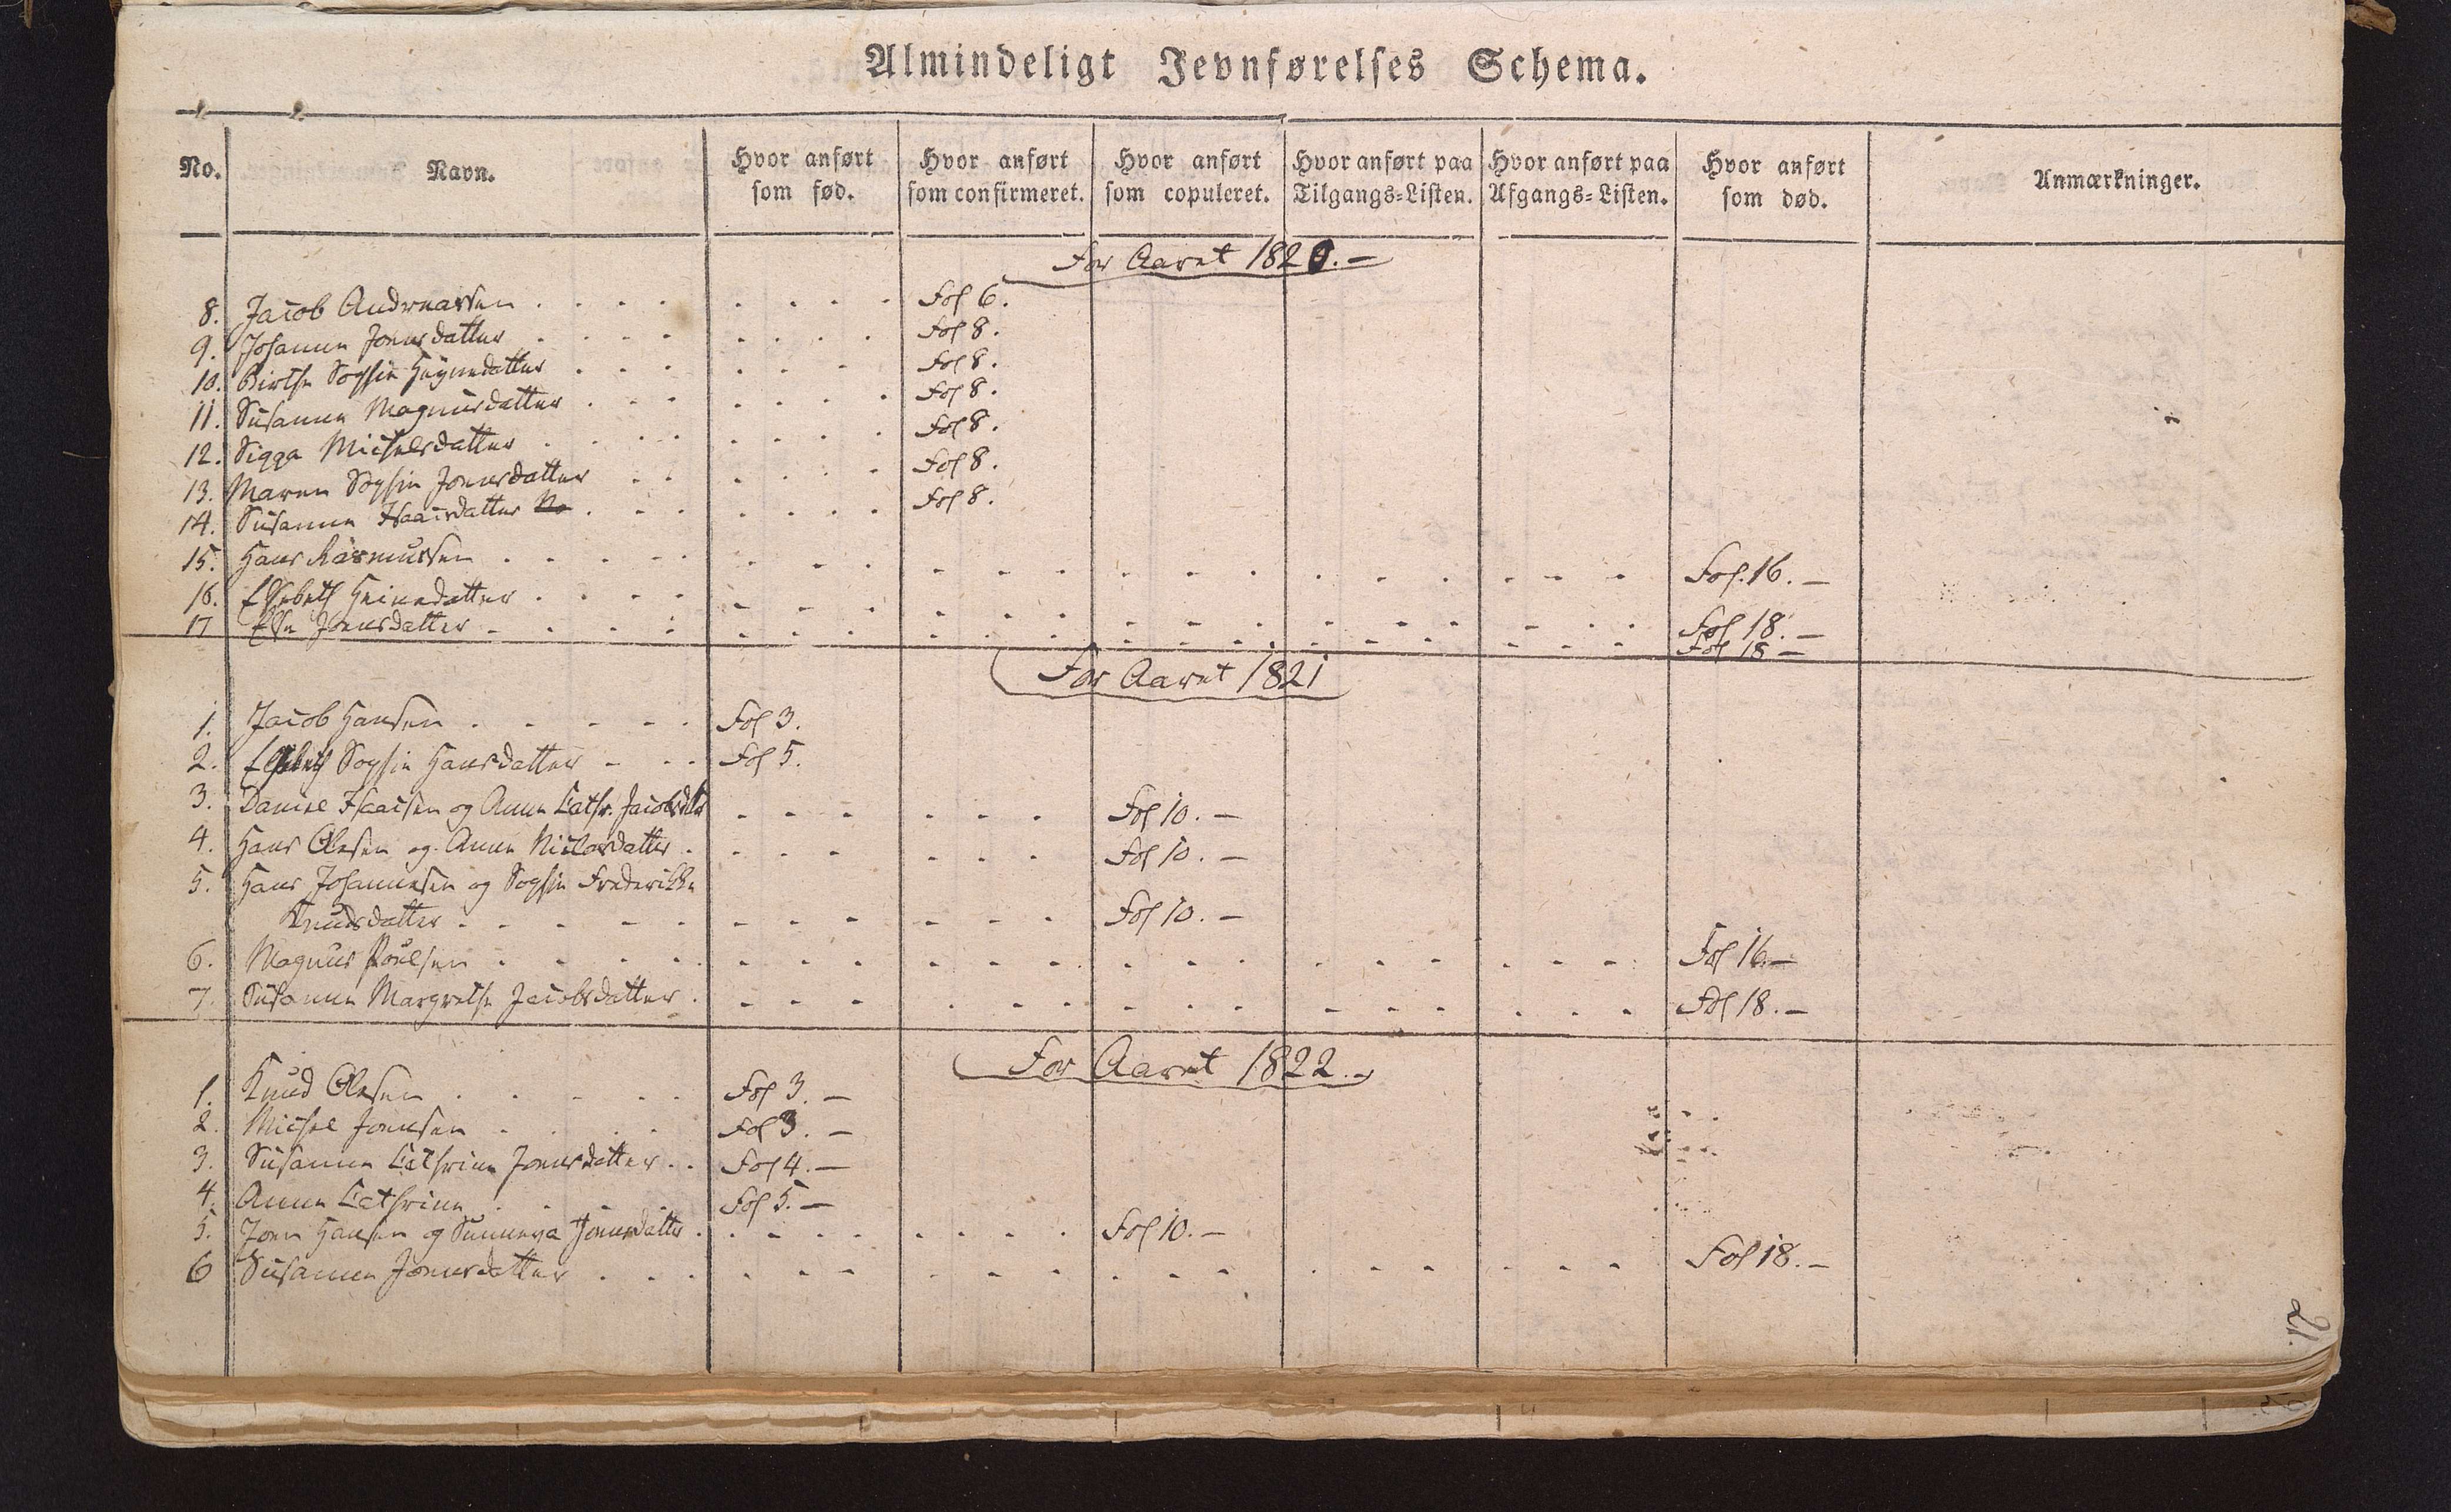 Almindeligt Jevnførelses Schema.
No. Navn. Hvor anført som fød. Hvor anført som confirmeret. Hvor anført som copuleret. Hvor anført paa Tilgangs-Listen. Hvor anført paa Afgangs-Listen. Hvor anført som død. Anmærkninger.
For Aaret 1820.-
8. Jacob Andreassen Fol 6.
9. Johanne Joensdatter Fol 8.
10. Birthe Sophie Heÿnedatter Fol 8.
11. Susanne Magnusdatter Fol 8.
12. Sigga Michelsdatter Fol 8.
13. Maren Sophie Joensdatter Fol 8.
14. Susanne Isaacsdatter No Fol 8.
15. Hans Rasmussen Fol. 16.-
16. Elsebeth Heinedatter Fol 18.-
17 Else Joensdatter Fol 18-
For Aaret 1821
1. Jacob Hansen Fol 3.
2. Elsebeth Sophie Hansdatter Fol 5.
3. Daniel Isacsen og Anne Cathr. Jacobsdtr Fol 10.-
4. Hans Olesen og Anne Niclasdatter Fol 10.-
5. Hans Johannesen og Sophie Frederikke
Knudsdatter Fol 10.-
6. Magnus Poulsen Fol 16-
7. Susanne Margrethe Jacobsdatter Fol 18.-
For Aaret 1822.-
1. Knud Olesen Fol 3.-
2. Michel Joensen Fol 3.-
3. Susanne Cathrine Joensdatter Fol 4.-
4. Anne Cathrine Fol 5.-
5. Joen Hansen og Sunneva Joensdatter Fol 10.-
6 Susanne Joensdatter Fol 18.-
21.